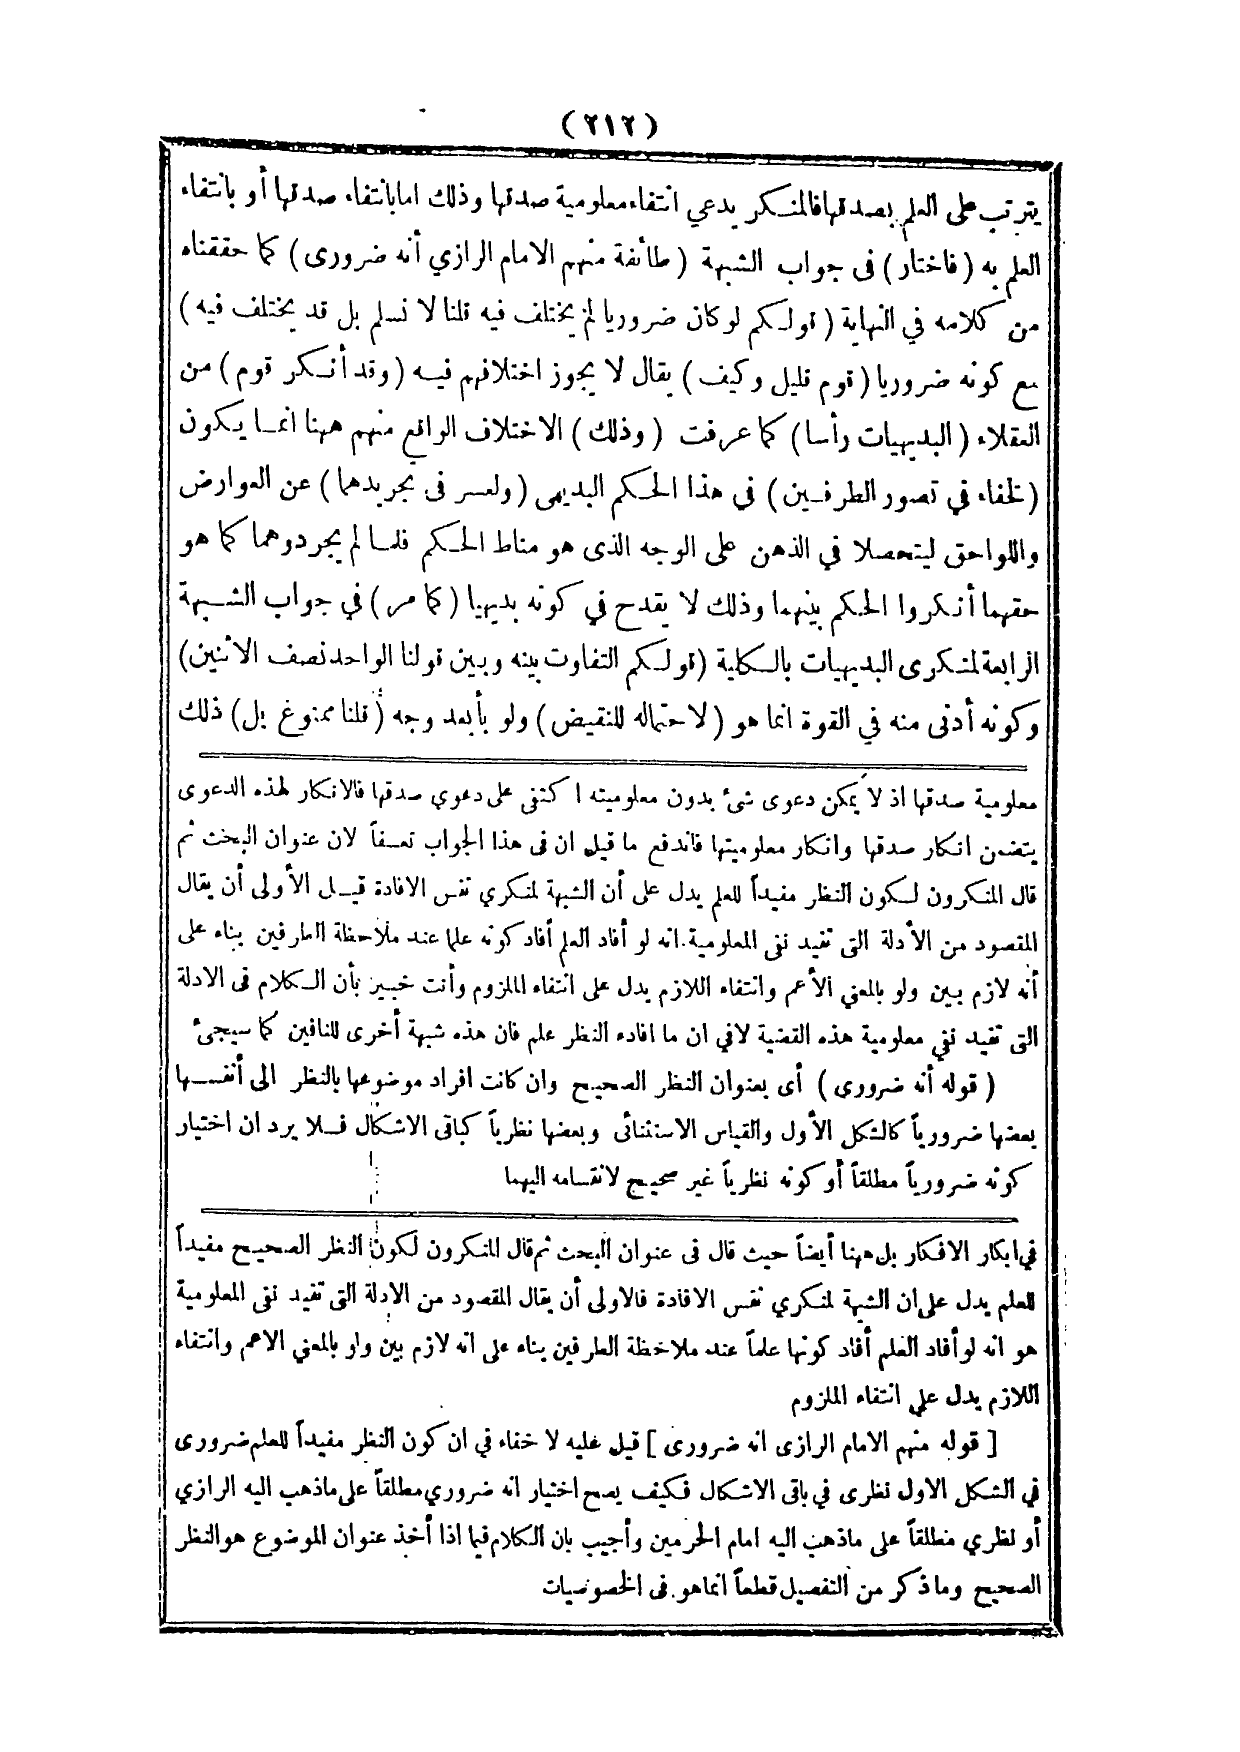 (٢١٢)
يترتب على العلم بصدقها فالمنكر يدعي انتفاء معلومية صدقها وذلك اما بانتفاء صدقها أو بانتفاء
العلم به (فاختار) فى جواب الشبهة (طائفة منهم الامام الرازي أنه ضرورى) كما حققناه
من كلامه في النهاية (قولكم لو كان ضروريا لم يختلف فيه قلنا لا نسلم بل قد يختلف فيه)
مع كونه ضروريا (قوم قليل وكيف) يقال لا يجوز اختلافهم فيه (وقد أنكر قوم) من
العقلاء (البديهيات رأسا) كما عرفت (وذلك) الاختلاف الواقع منهم ههنا انما يكون
(لخفاء في تصور الطرفين) في هذا الحكم البديهى (ولعسر فى تجريدهما) عن العوارض
واللواحق ليتحصلا في الذهن على الوجه الذى هو مناط الحكم فلما لم يجردوهما كما هو
حقهما أنكروا الحكم بينهما وذلك لا يقدح في كونه بديهيا (كما مر) في جواب الشبهة
الرابعة لمنكرى البديهيات بالكلية (قولكم التفاوت بينه وبين قولنا الواحد نصف الاثنين)
وكونه أدنى منه في القوة انما هو (لاحتماله للنقيض) ولو بأبعد وجه (قلنا ممنوع بل) ذلك
معلومية صدقها اذ لا يمكن دعوى شئ بدون معلوميته اكتفى على دعوي صدقها فالانكار لهذه الدعوى
يتضمن انكار صدقها وانكار معلوميتها فاندفع ما قيل ان فى هذا الجواب تعسفاً لان عنوان البحث ثم
قال المنكرون لكون النظر مفيداً للعلم يدل على أن الشبهة لمنكري نفس الافادة قيل الأولى أن يقال
المقصود من الأدلة التى تفيد نفى المعلومية انه لو أفاد العلم أفاد كونه علما عند ملاحظة الطرفين بناء على
أنه لازم بين ولو بالمعني الأعم وانتفاء اللازم يدل على انتفاء الملزوم وأنت خبير بأن الكلام فى الادلة
التى تفيد نفي معلومية هذه القضية لافي ان ما افاده النظر علم فان هذه شبهة أخرى للنافين كما سيجئ
(قوله أنه ضرورى) أى بعنوان النظر الصحيح وان كانت افراد موضوعها بالنظر الى أنفسها
بعضها ضرورياً كالشكل الأول والقياس الاستثنائى وبعضها نظرياً كباقى الاشكال فلا يرد ان اختيار
كونه ضرورياً مطلقاً أو كونه نظرياً غير صحيح لانقسامه اليهما
في ابكار الافكار بل ههنا أيضاً حيث قال فى عنوان البحث ثم قال المنكرون لكون النظر الصحيح مفيداً
للعلم يدل على ان الشبهة لمنكري نفس الافادة فالاولى أن يقال المقصود من الادلة التى تفيد نفى المعلومية
هو انه لو أفاد العلم أفاد كونها علماً عند ملاحظة الطرفين بناء على انه لازم بين ولو بالمعني الاعم وانتفاء
اللازم يدل علي انتفاء الملزوم
[قوله منهم الامام الرازى انه ضرورى] قيل عليه لا خفاء في ان كون النظر مفيداً للعلم ضرورى
في الشكل الاول نظرى في باقى الاشكال فكيف يصح اختيار انه ضروري مطلقاً على ماذهب اليه الرازي
أو نظري مطلقاً على ماذهب اليه امام الحرمين وأجيب بان الكلام فيما اذا أخذ عنوان الموضوع هو النظر
الصحيح وما ذكر من التفصيل قطعاً انما هو فى الخصوصيات